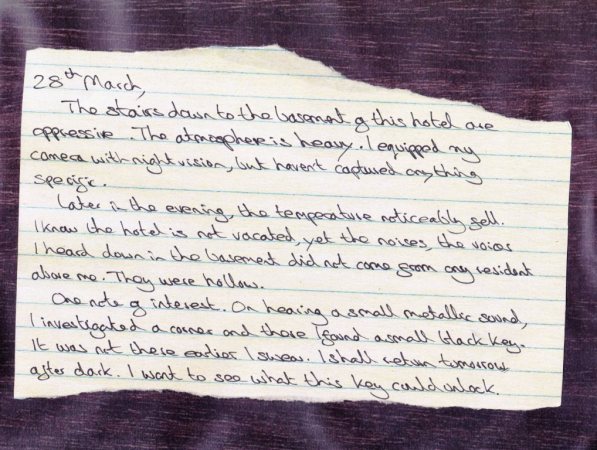 28th March,
The stairs down to the basement of this hotel are
oppressive. The atmosphere is heavy. I equipped my
camera with night vision, but haven't captured anything
specific.
Later in the evening, the temperature noticeably fell.
I know the hotel is not vacated, yet the noises, the voices
I heard down in the basement did not come from any resident
above me. They were hollow.
One note of interest. On hearing a small metallic sound,
I investigated a corner and there found a small black key.
It was not there earlier I swear. I shall return tomorrow
after dark. I want to see what this key could unlock.